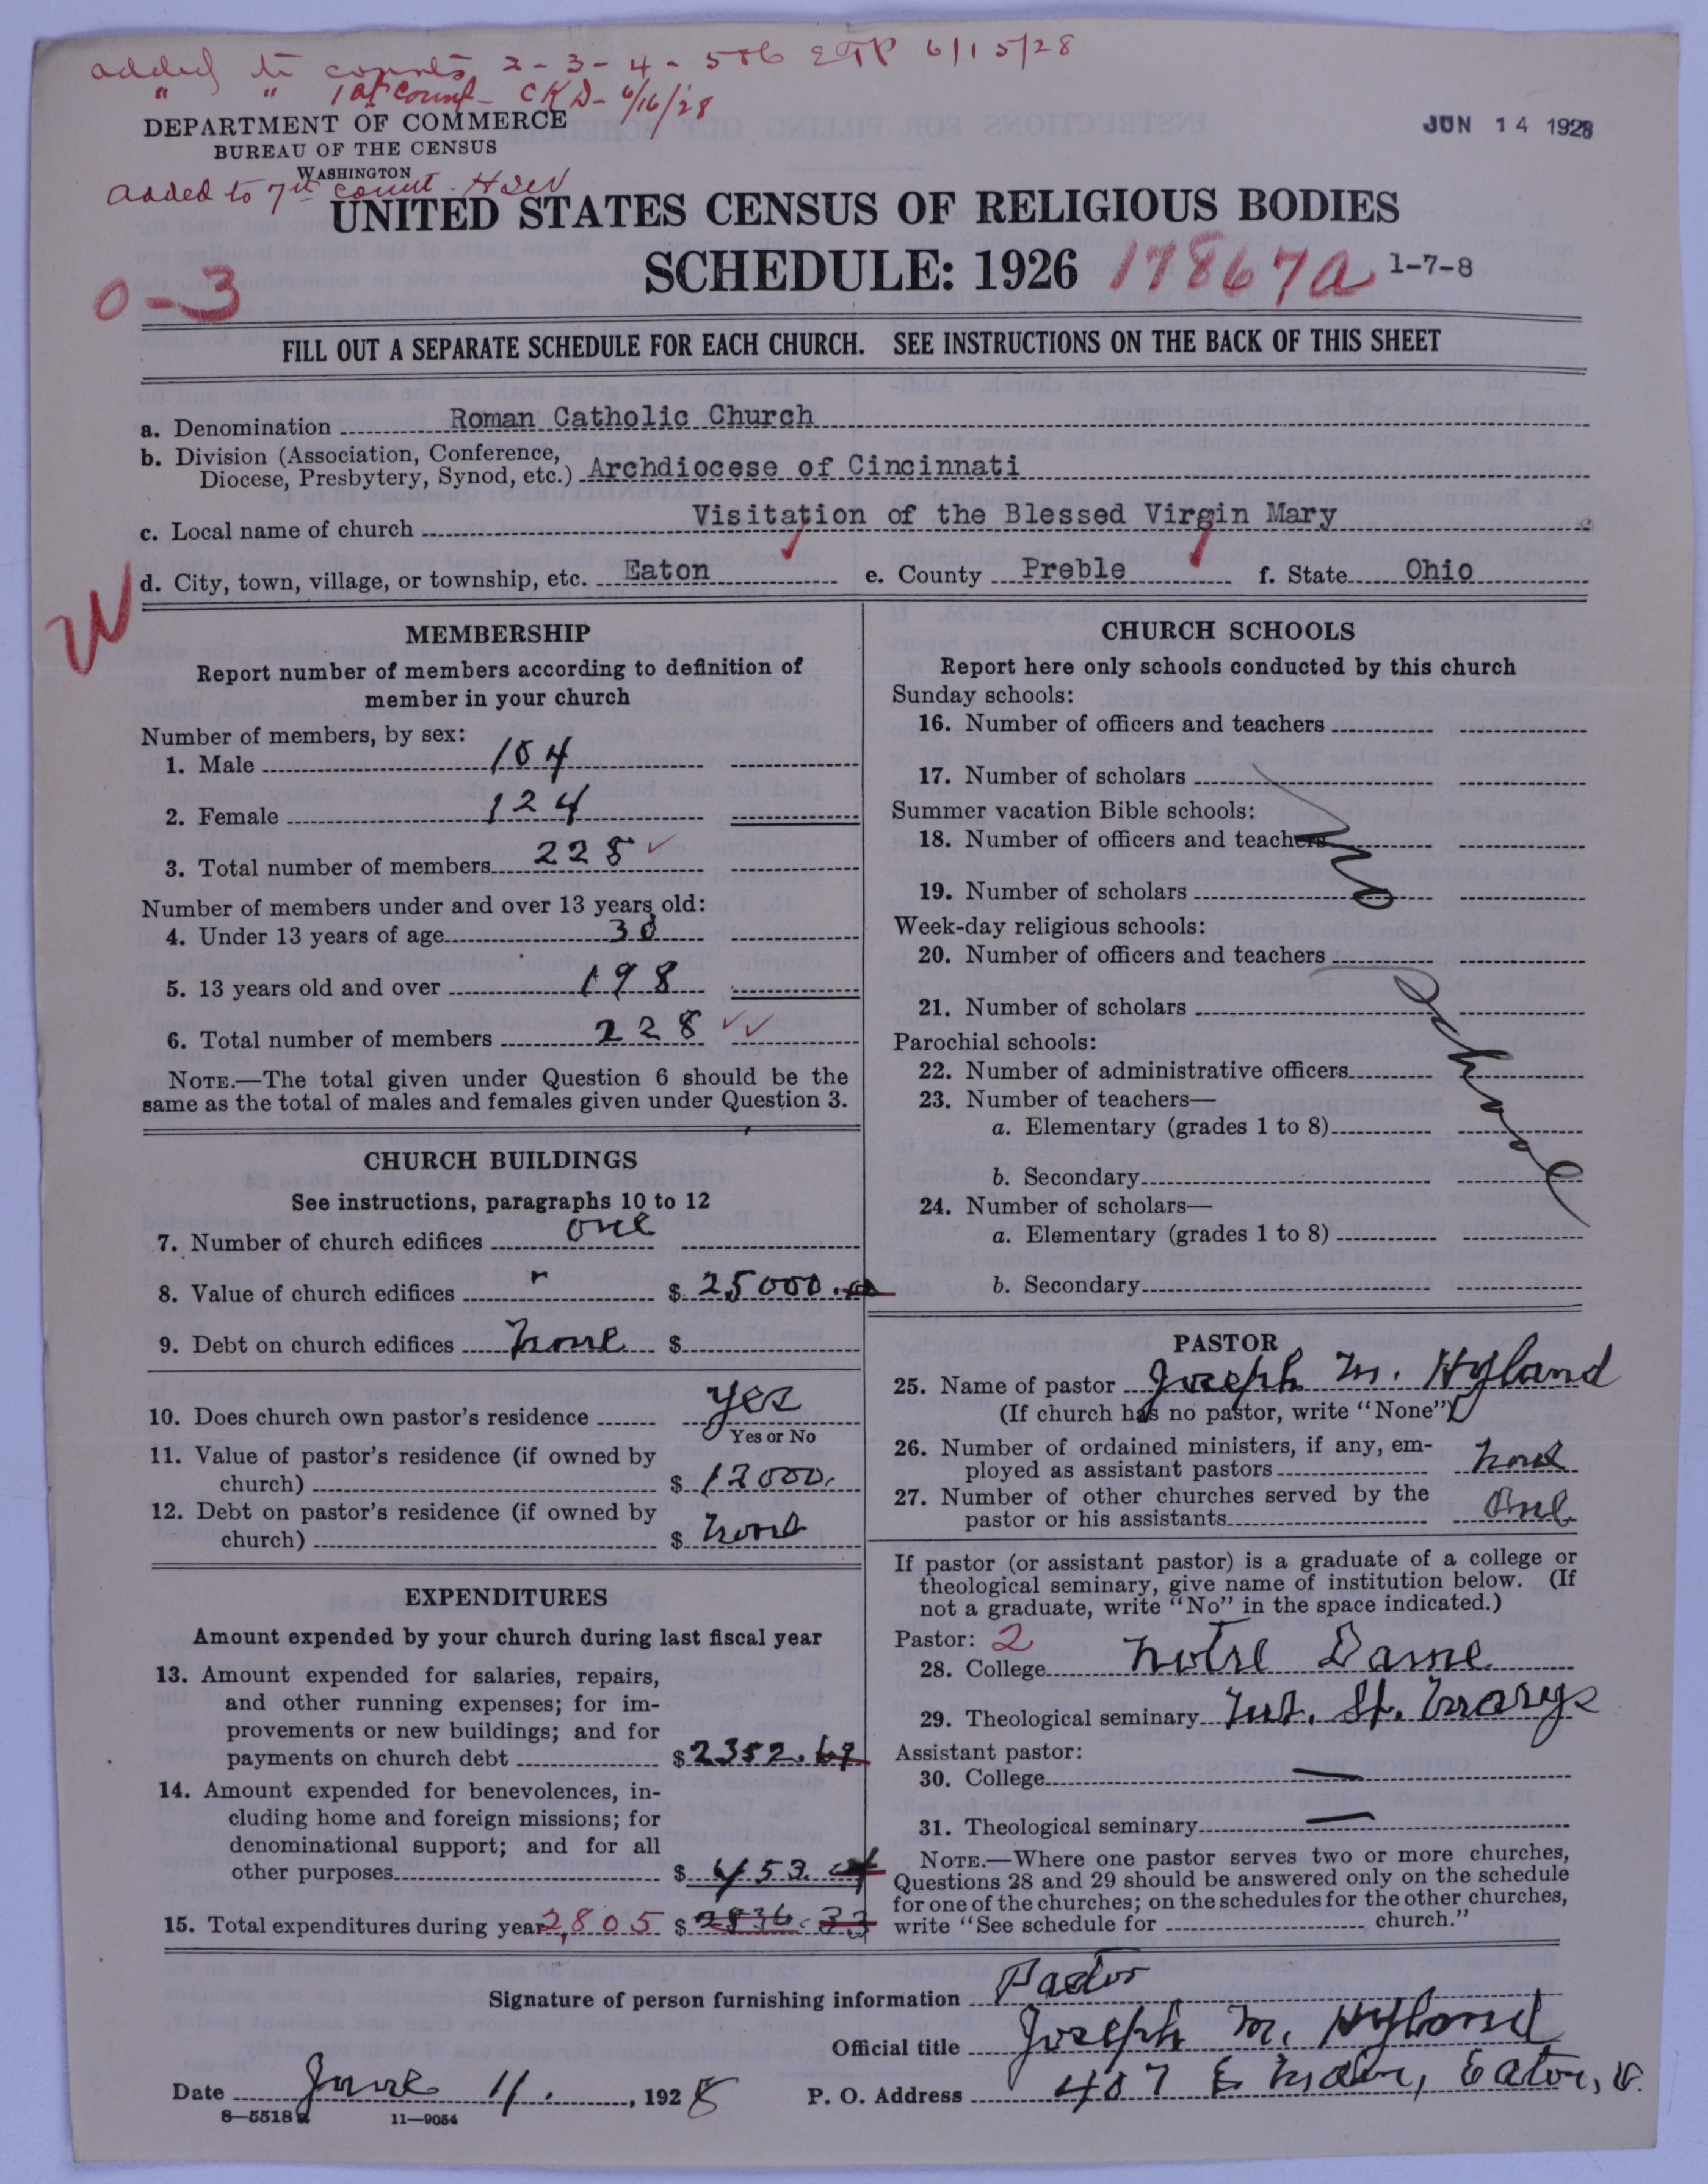 added to counts 2-3-4-5+6 ETP 6/15/28
" " 1st count- CKD- 6/16/28
DEPARTMENT OF COMMERCE
BUREAU OF THE CENSUS
WASHINGTON
JUN 14 1928
added to 7th count-
UNITED STATES CENSUS OF RELIGIOUS BODIES
SCHEDULE: 1926 17867a 1-7-8
0-3
FILL OUT A SEPARATE SCHEDULE FOR EACH CHURCH. SEE INSTRUCTIONS ON THE BACK OF THIS SHEET
a. Denomination Roman Catholic Church
b. Division (Association, Conference,
Diocese, Presbytery, Synod, etc.) Archdiocese of Cincinnati
c. Local name of church Visitation of the Blessed Virgin Mary
d. City, town, village, or township, etc. Eaton e. County Preble f. State Ohio
W
MEMBERSHIP
Report number of members according to definition of
member in your church
Number of members, by sex:
1. Male 104
2. Female 124
3. Total number of members 228
Number of members under and over 13 years old:
4. Under 13 years of age 30
5. 13 years old and over 198
6. Total number of members 228
NOTE.—The total given under Question 6 should be the
same as the total of males and females given under Question 3.
CHURCH BUILDINGS
See instructions, paragraphs 10 to 12
7. Number of church edifices one
8. Value of church edifices $ 25000.00
9. Debt on church edifices None $
10. Does church own pastor's residence yes
Yes or No
11. Value of pastor's residence (if owned by
church) $ 12000.
12. Debt on pastor's residence (if owned by
church) $ None
EXPENDITURES
Amount expended by your church during last fiscal year
13. Amount expended for salaries, repairs,
and other running expenses; for im-
provements or new buildings; and for
payments on church debt $ 2352.69
14. Amount expended for benevolences, in-
cluding home and foreign missions; for
denominational support; and for all
other purposes $ 453.
15. Total expenditures during year 2,805 $ 2836.33
CHURCH SCHOOLS
Report here only schools conducted by this church
Sunday schools:
16. Number of officers and teachers
17. Number of scholars
Summer vacation Bible schools:
18. Number of officers and teachers
19. Number of scholars
No School
Week-day religious schools:
20. Number of officers and teachers
21. Number of scholars
Parochial schools:
22. Number of administrative officers
23. Number of teachers—
a. Elementary (grades 1 to 8)
b. Secondary
24. Number of scholars—
a. Elementary (grades 1 to 8)
b. Secondary
PASTOR
25. Name of pastor Joseph M. Hyland
(If church has no pastor, write "None")
26. Number of ordained ministers, if any, em-
ployed as assistant pastors None
27. Number of other churches served by the
pastor or his assistants One
If pastor (or assistant pastor) is a graduate of a college or
theological seminary, give name of institution below. (If
not a graduate, write "No" in the space indicated.)
Pastor: 2
28. College Notre Dame
29. Theological seminary Mt. St. Marys
Assistant pastor:
30. College —
31. Theological seminary —
NOTE.—Where one pastor serves two or more churches,
Questions 28 and 29 should be answered only on the schedule
for one of the churches; on the schedules for the other churches,
write "See schedule for church."
Signature of person furnishing information Pastor
Official title Joseph M. Hyland
Date June 11. , 1928 P. O. Address 407 E Main, Eaton, O.
8—5518a 11—9054